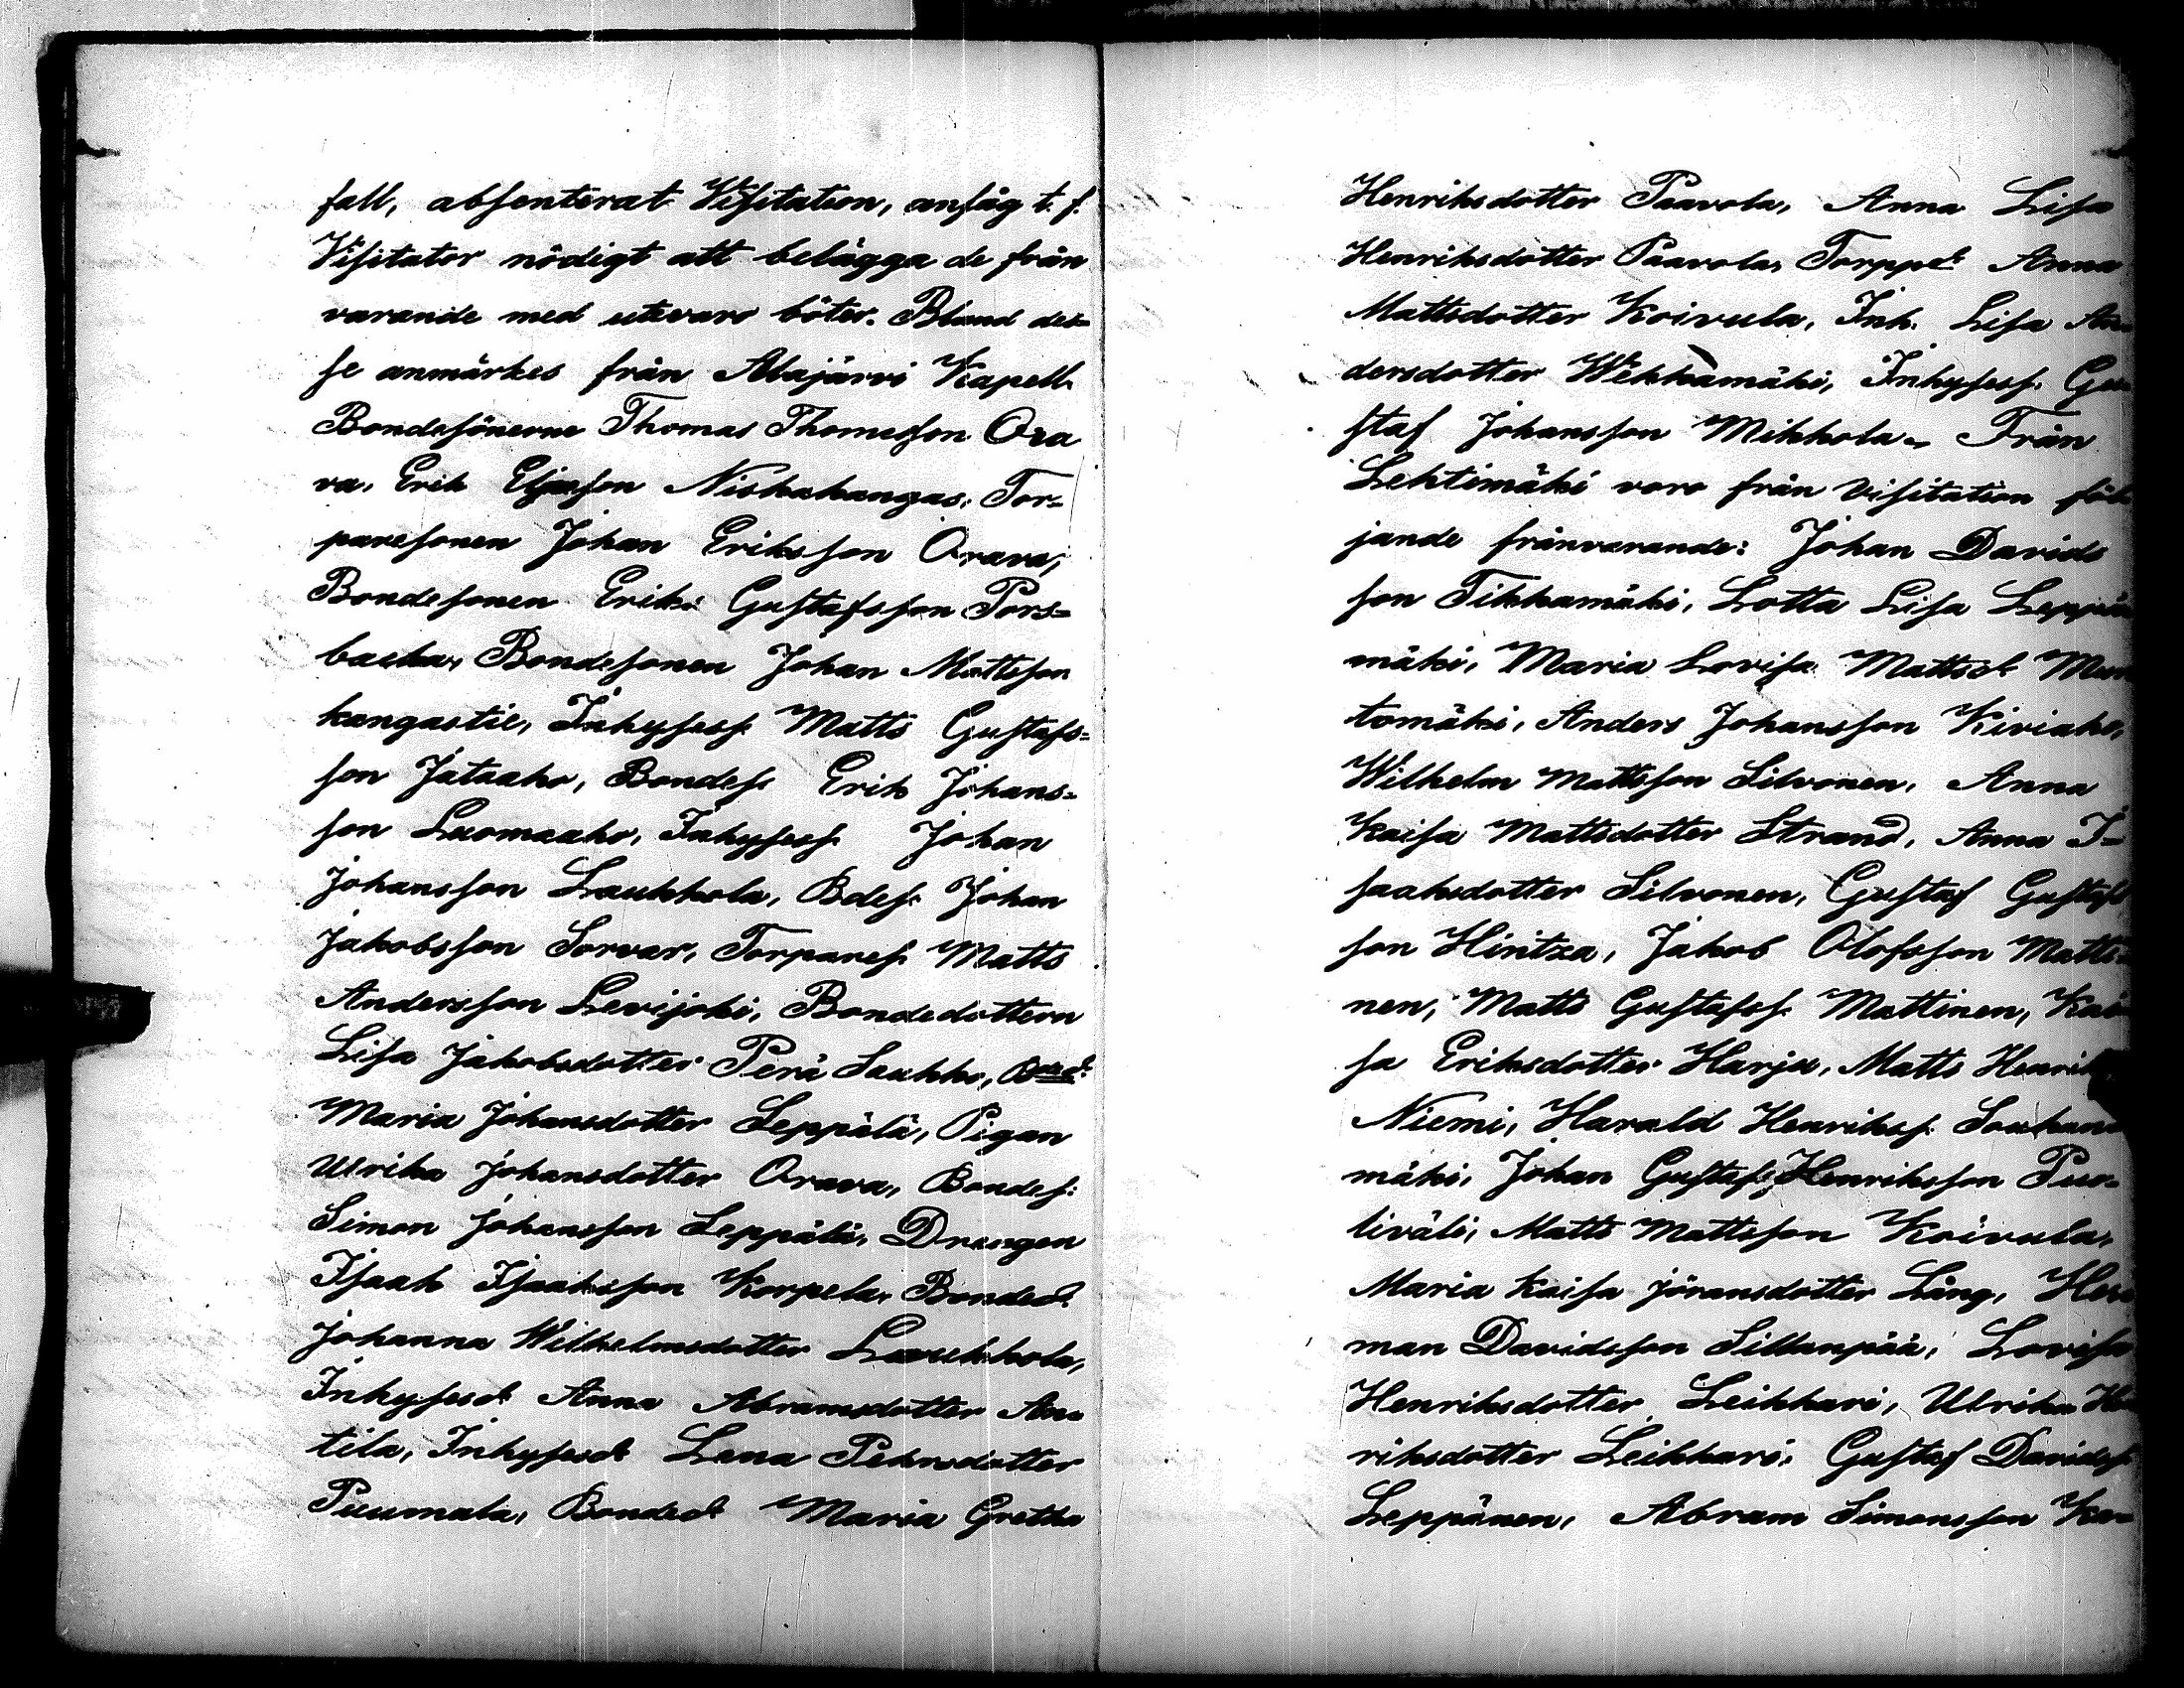 fall, absenterat Visitation, ansåg t. f.
Visitator nödigt att belägga de från
varande med utevaro böter. Bland des=
se anmärkes från Alajärvi Kapell
Bondesönerne Thomas Thomasson Ora
va, Erik Eljasson Niskakangas, Tor=
paresonen Johan Eriksson Orava,
Bondesonen Erik Gustafsson Pors=
backa, Bondesonen Johan Mattsson
kangastie, Inhysess. Matts Gustafs=
son Jätaaho, Bondes. Erik Johans=
son Luomaaho, Inhysess. Johan
Johansson Laukkola, Bdes. Johan
Jakobsson Sorvar, Torpares. Matts
Andersson Levijoki, Bondedottern
Lisa Jakobsdotter Perä Saukko, Bond.
Maria Johansdotter Leppälä, Pigan
Ulrika Johansdotter Orava, Bondes:
Simon Johansson Leppälä, Drengen
Isaak Isaaksson Korpela, Bonded.
Johanna Wilhelmsdotter Laukkola,
Inhysesd. Anna Abramsdotter An=
tila, Inhysesd. Lena Pehrsdotter
Puumala, Bonded. Maria Gretha
Henriksdotter Paavola, Anna Lisa
Henriksdotter Paavola, Torpped. Anna
Mattsdotter Koivula, Inh. Lisa An
dersdotter Wekkamäki, Inhysess. Gu
staf Johansson Mikkola. Från
Lehtimäki voro från Visitation föl
jande frånvarande: Johan Davids
son Tikkamäki, Lotta Lisa Leppä
mäki, Maria Lovisa Mattsd.
tomäki, Anders Johansson Kiviaho,
Wilhelm Mattsson Silvonen, Anna
Kaisa Mattsdotter Strand, Anna I=
saaksdotter Silvonen, Gustaf Gustafs
son Hintza, Jakob Olofsson Matti=
nen, Matts Gustafss. Mattinen, Kai
sa Eriksdotter Harju, Matts Henrik
Niemi, Harald Henrikss. Saukon
mäki, Johan Gustaf Henriksson Puo=
liväli, Matts Mattsson Koivula,
Maria Kaisa Jöransdotter Lång, Her
man Davidsson Sillanpää, Lovisa
Henriksdotter Leikkari, Ulrika Hen
riksdotter Leikkari, Gustaf Davidss
Leppänen, Abram Simonsson Ka=